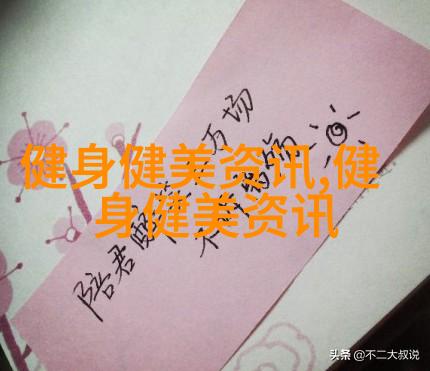 健身健美资讯,健
身健美资讯
陪君醉 万场
不
头条 @不二大叔说